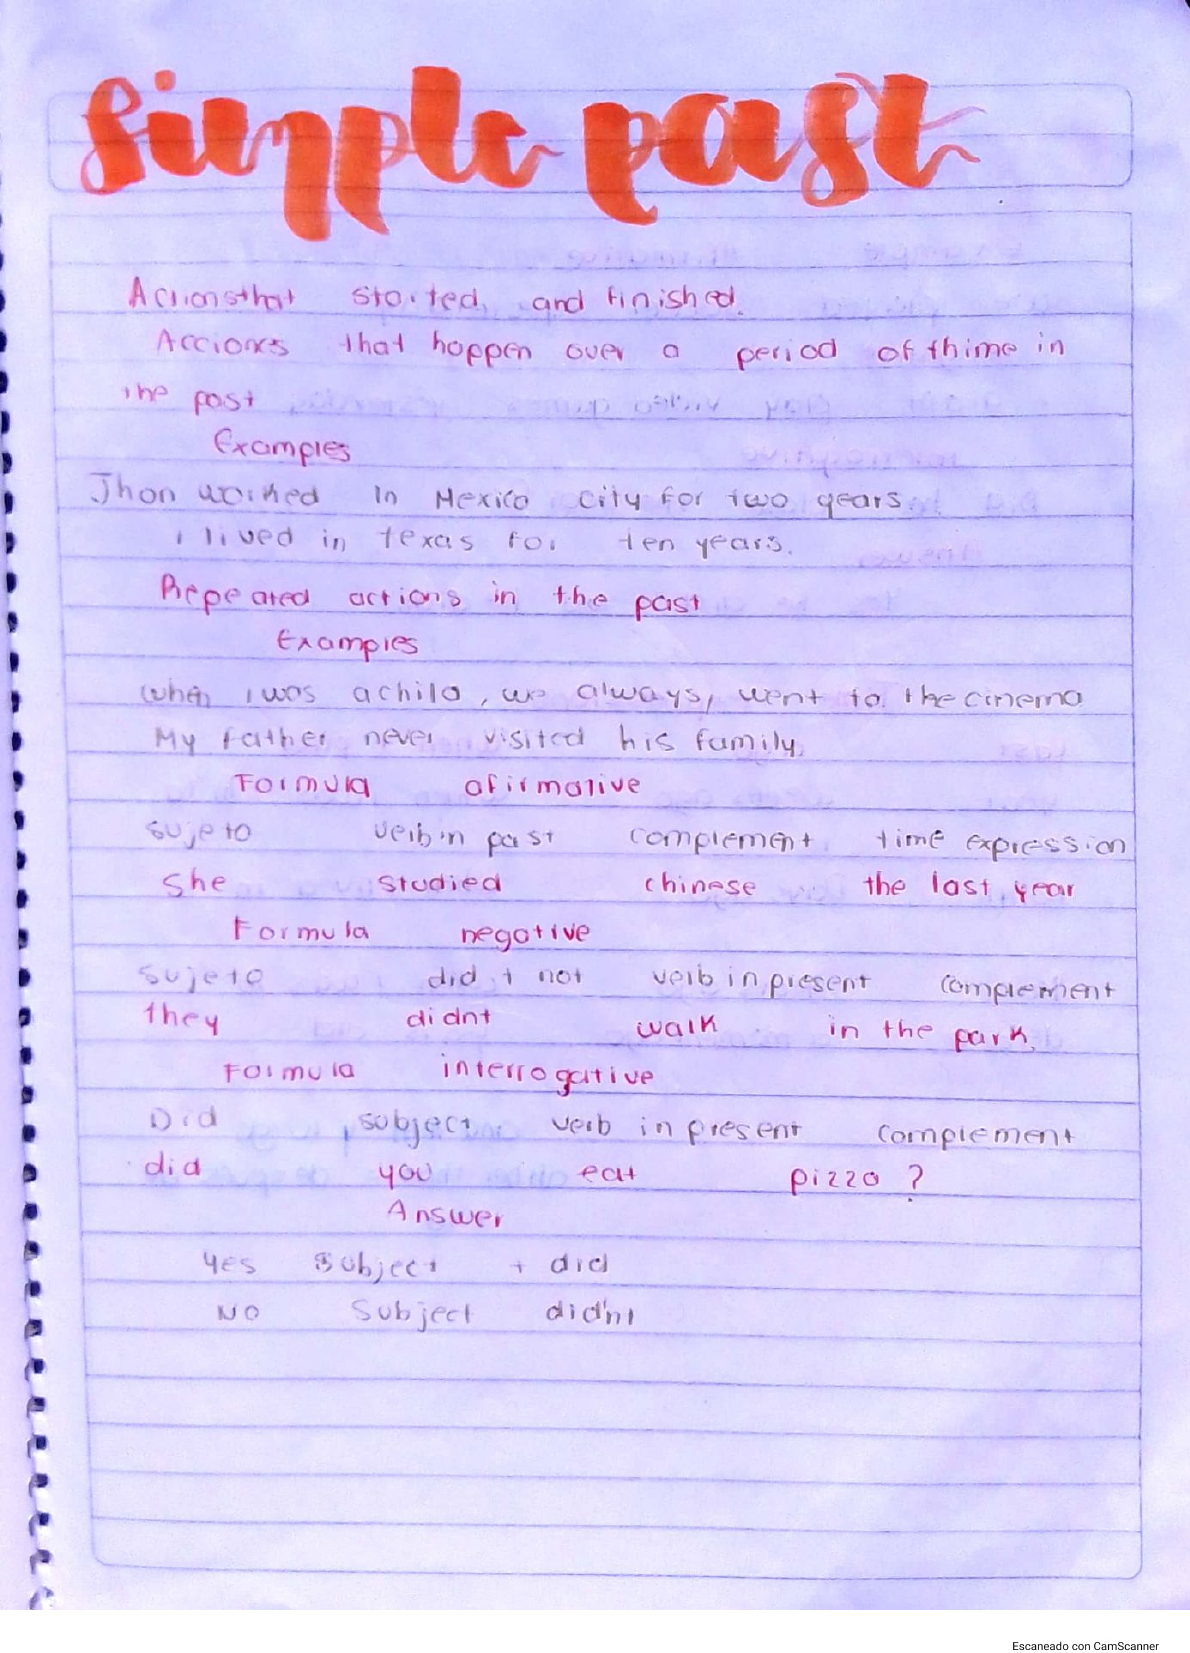 Simple past
Actions that started, and finished.
Acciones that happen over a period of thime in
the past
Examples
Jhon worked in Mexico City for two years.
i lived in texas for ten years.
Repeated actions in the past
Examples
when i was a child, we always, went to the cinema
My father never visited his family.
Formula afirmative
sujeto verb in past complement time expression
She studied chinese the last year
Formula negative
sujeto did + not verb in present complement
they didnt walk in the park.
Formula interrogative
Did subject verb in present complement
did you eat pizza ?
Answer
Yes subject + did
NO Subject didn't
Escaneado con CamScanner